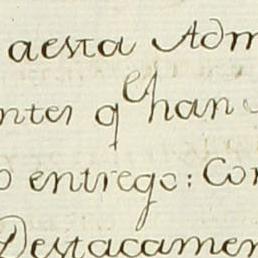 aesta Adm
ntes q.e han
o entrego: Con
Destacamen